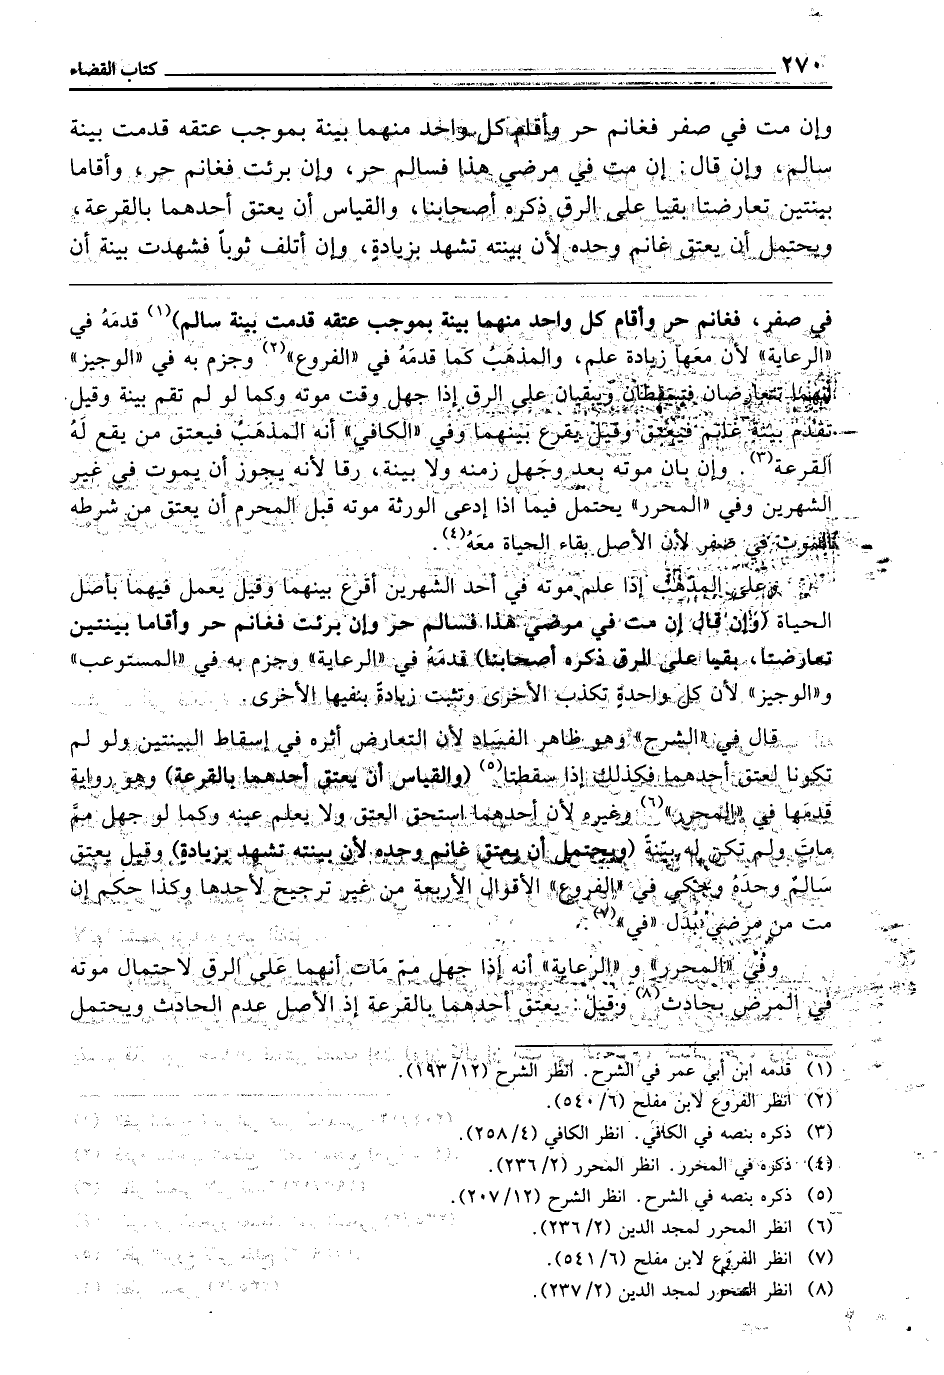 ٢٧٠ كتاب القضاء
وإن مت في صفر فغانم حر وأقام كل واحد منهما بينة بموجب عتقه قدمت بينة
سالم، وإن قال: إن مت في مرضي هذا فسالم حر، وإن برئت فغانم حر، وأقاما
بينتين تعارضتا بقيا على الرق ذكره أصحابنا، والقياس أن يعتق أحدهما بالقرعة،
ويحتمل أن يعتق غانم وحده لأن بينته تشهد بزيادةٍ، وإن أتلف ثوباً فشهدت بينة أن
في صفر، فغانم حر وأقام كل واحد منهما بينة بموجب عتقه قدمت بينة سالم)(١) قدمَهُ في
«الرعاية» لأن معَها زيادة علم، والمذهَبُ كما قدمَهُ في «الفروع»(٢) وجزم به في «الوجيز»
أنهما تتعارضان فتسقطان ويبقيان على الرق إذا جهل وقت موته وكما لو لم تقم بينة وقيل
تقدم بينة غانم فيعتق وقيل يقرع بينهما وفي «الكافي» أنه المذهَبُ فيعتق من يقع لَهُ
القرعة(٣). وإن بان موته بعد وجَهل زمنه ولا بينة، رقا لأنه يجوز أن يموت في غير
الشهرين وفي «المحرر» يحتمل فيما اذا إدعى الورثة موته قبل المحرم أن يعتق من شرطه
الموت في صفر لأن الأصل بقاء الحياة معَهُ(٤).
وعلى المذهَب إذا علم موته في أحد الشهرين أقرع بينهما وقيل يعمل فيهما بأصل
الحياة (وإن قال إن مت في مرضي هذا فسالم حر وإن برئت فغانم حر وأقاما بينتين
تعارضتا، بقيا على الرق ذكره أصحابنا) قدمَهُ في «الرعاية» وجزم به في «المستوعب»
و«الوجيز» لأن كل واحدةٍ تكذب الأخرى وتثبت زيادةً بنفيها الأخرى.
قال في «الشرح» وهو ظاهر الفسَاد لأن التعارض أثره في إسقاط البينتين ولو لم
تكونا لعتق أحدهما فكذلك إذا سقطتا(٥) (والقياس أن يعتق أحدهما بالقرعة) وهو رواية
قدمَها في «المحرر»(٦) وغيره لأن أحدهما استحق العتق ولا يعلم عينه وكما لو جهل ممَّ
ماتَ ولم تكن له بيّنةً (ويحتمل أن يعتق غانم وحده لأن بينته تشهد بزيادة) وقيل يعتق
سَالمٌ وحدَهُ ويحكي في «الفروع» الأقوال الأربعة من غير ترجيح لأحدها وكذا حكم إن
مت من مرضي بَدَل «في»(٧).
وفي «المحرر» و «الرعاية» أنه إذا جهل ممّ مَات أنهما عَلى الرق لاحتمال موته
في المرض بحادث(٨) وقيل: يعتق أحدهما بالقرعة إذ الأصل عدم الحادث ويحتمل
(١) قدمه ابن أبي عمر في الشرح. انظر الشرح (١٩٣/١٢).
(٢) انظر الفروع لابن مفلح (٥٤٠/٦).
(٣) ذكره بنصه في الكافي. انظر الكافي (٢٥٨/٤).
(٤) ذكره في المحرر. انظر المحرر (٢٣٦/٢).
(٥) ذكره بنصه في الشرح. انظر الشرح (٢٠٧/١٢).
(٦) انظر المحرر لمجد الدين (٢٣٦/٢).
(٧) انظر الفروع لابن مفلح (٥٤١/٦).
(٨) انظر المحرر لمجد الدين (٢٣٧/٢).